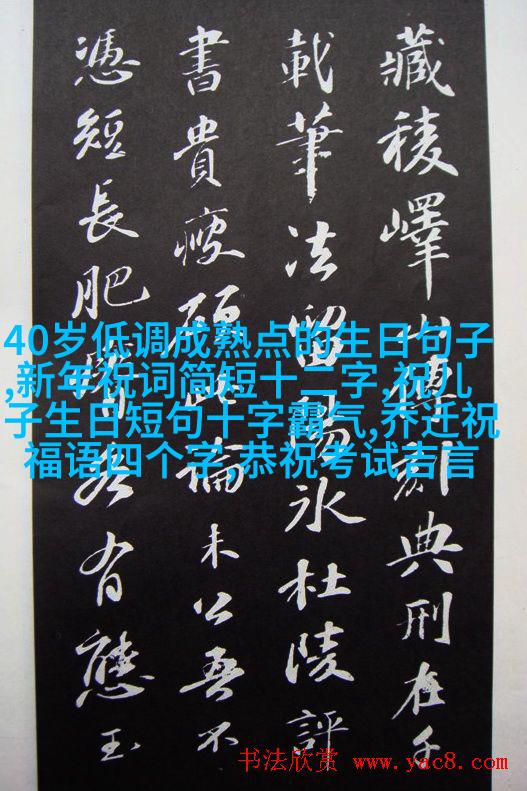 藏稜嶧山傳刻典刑在千
載筆法留陽冰杜陵評
書貴瘦硬此論未公吾不
憑短長肥瘠各有態玉
40岁低调成熟点的生日句子
,新年祝词简短十二字,祝儿
子生日短句十字霸气,乔迁祝
福语四个字,恭祝考试吉言
书法欣赏 www.yac8.com